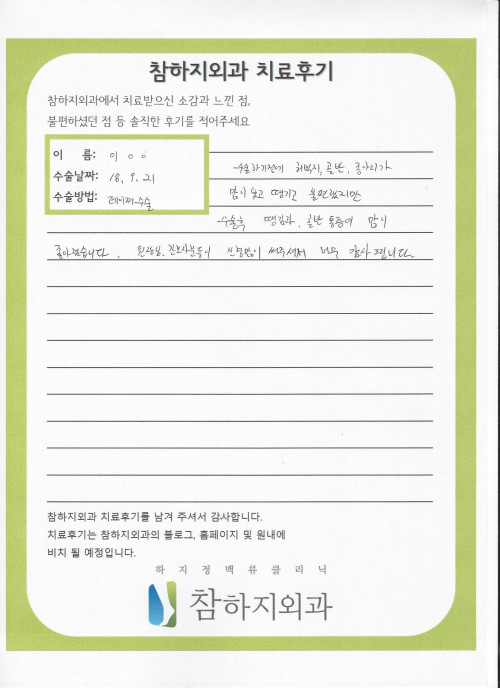 참하지외과 치료후기
참하지외과에서 치료받으신 소감과 느낀 점,
불편하셨던 점 등 솔직한 후기를 적어주세요
이 름: 이 ○ ○
수술날짜: 18. 9. 21
수술방법: 레이저수술
수술하기전에 허벅지, 골반, 종아리가
많이 붓고 땡기고 불편했지만
수술후 땡김과, 골반 통증이 많이
좋아졌습니다. 원장님, 간호사분들이 신경많이 써주셔서 너무 감사드립니다.
참하지외과 치료후기를 남겨 주셔서 감사합니다.
치료후기는 참하지외과의 블로그, 홈페이지 및 원내에
비치 될 예정입니다.
하지정맥류클리닉
참하지외과